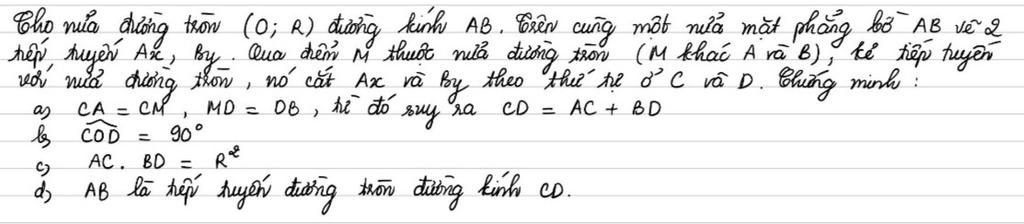 Cho nửa đường tròn (O; R) đường kính AB. Trên cùng một nửa mặt phẳng bờ AB vẽ 2
tiếp tuyến Ax, By. Qua điểm M thuộc nửa đường tròn (M khác A và B), kẻ tiếp tuyến
với nửa đường tròn, nó cắt Ax và By theo thứ tự ở C và D. Chứng minh :
a) CA = CM, MD = DB, từ đó suy ra CD = AC + BD
b) \widehat{COD} = 90°
c) AC. BD = R²
d) AB là tiếp tuyến đường tròn đường kính CD.